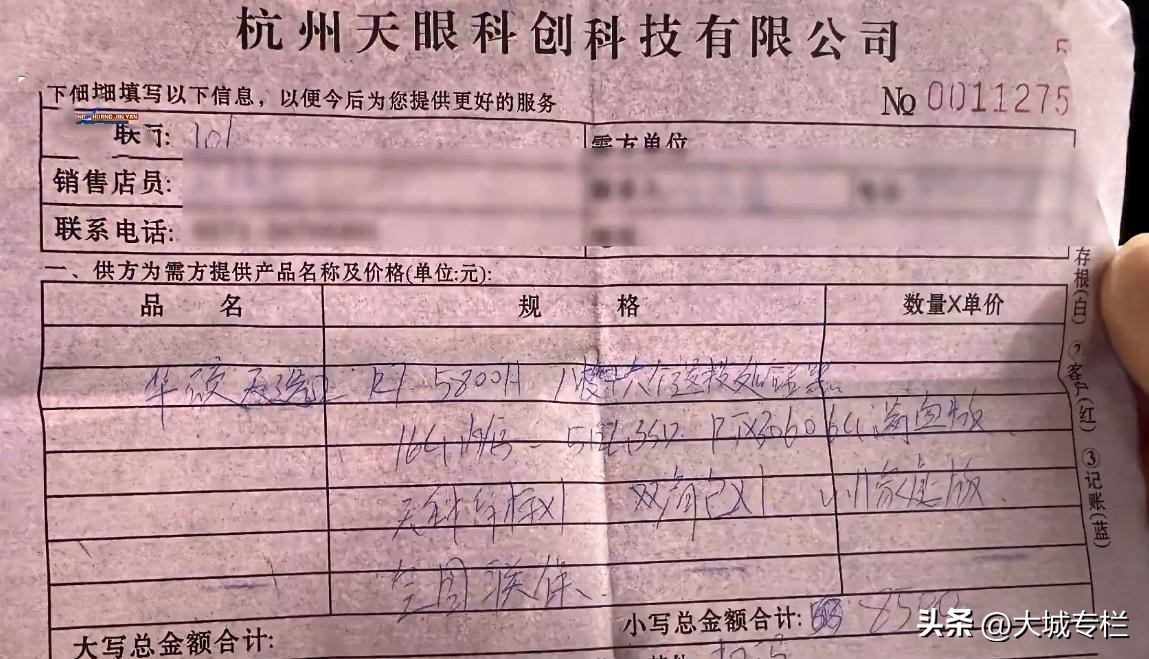 杭州天眼科创科技有限公司
5
下细细填写以下信息，以便今后为您提供更好的服务
No 0011275
HUANG JIN YAN
101
需方单位
销售店员:
联系电话:
一、供方为需方提供产品名称及价格(单位:元):
品 名 规 格 数量X单价
华硕天选2 R7 5800H 八核十六线程处理器
16G内存 512G SSD RTX3060 6G 满血版
双肩包X1 w11家庭版
全国联保
小写总金额合计: 8500
大写总金额合计:
存根(白) ②客户(红) ③记账(蓝)
头条 @大城专栏